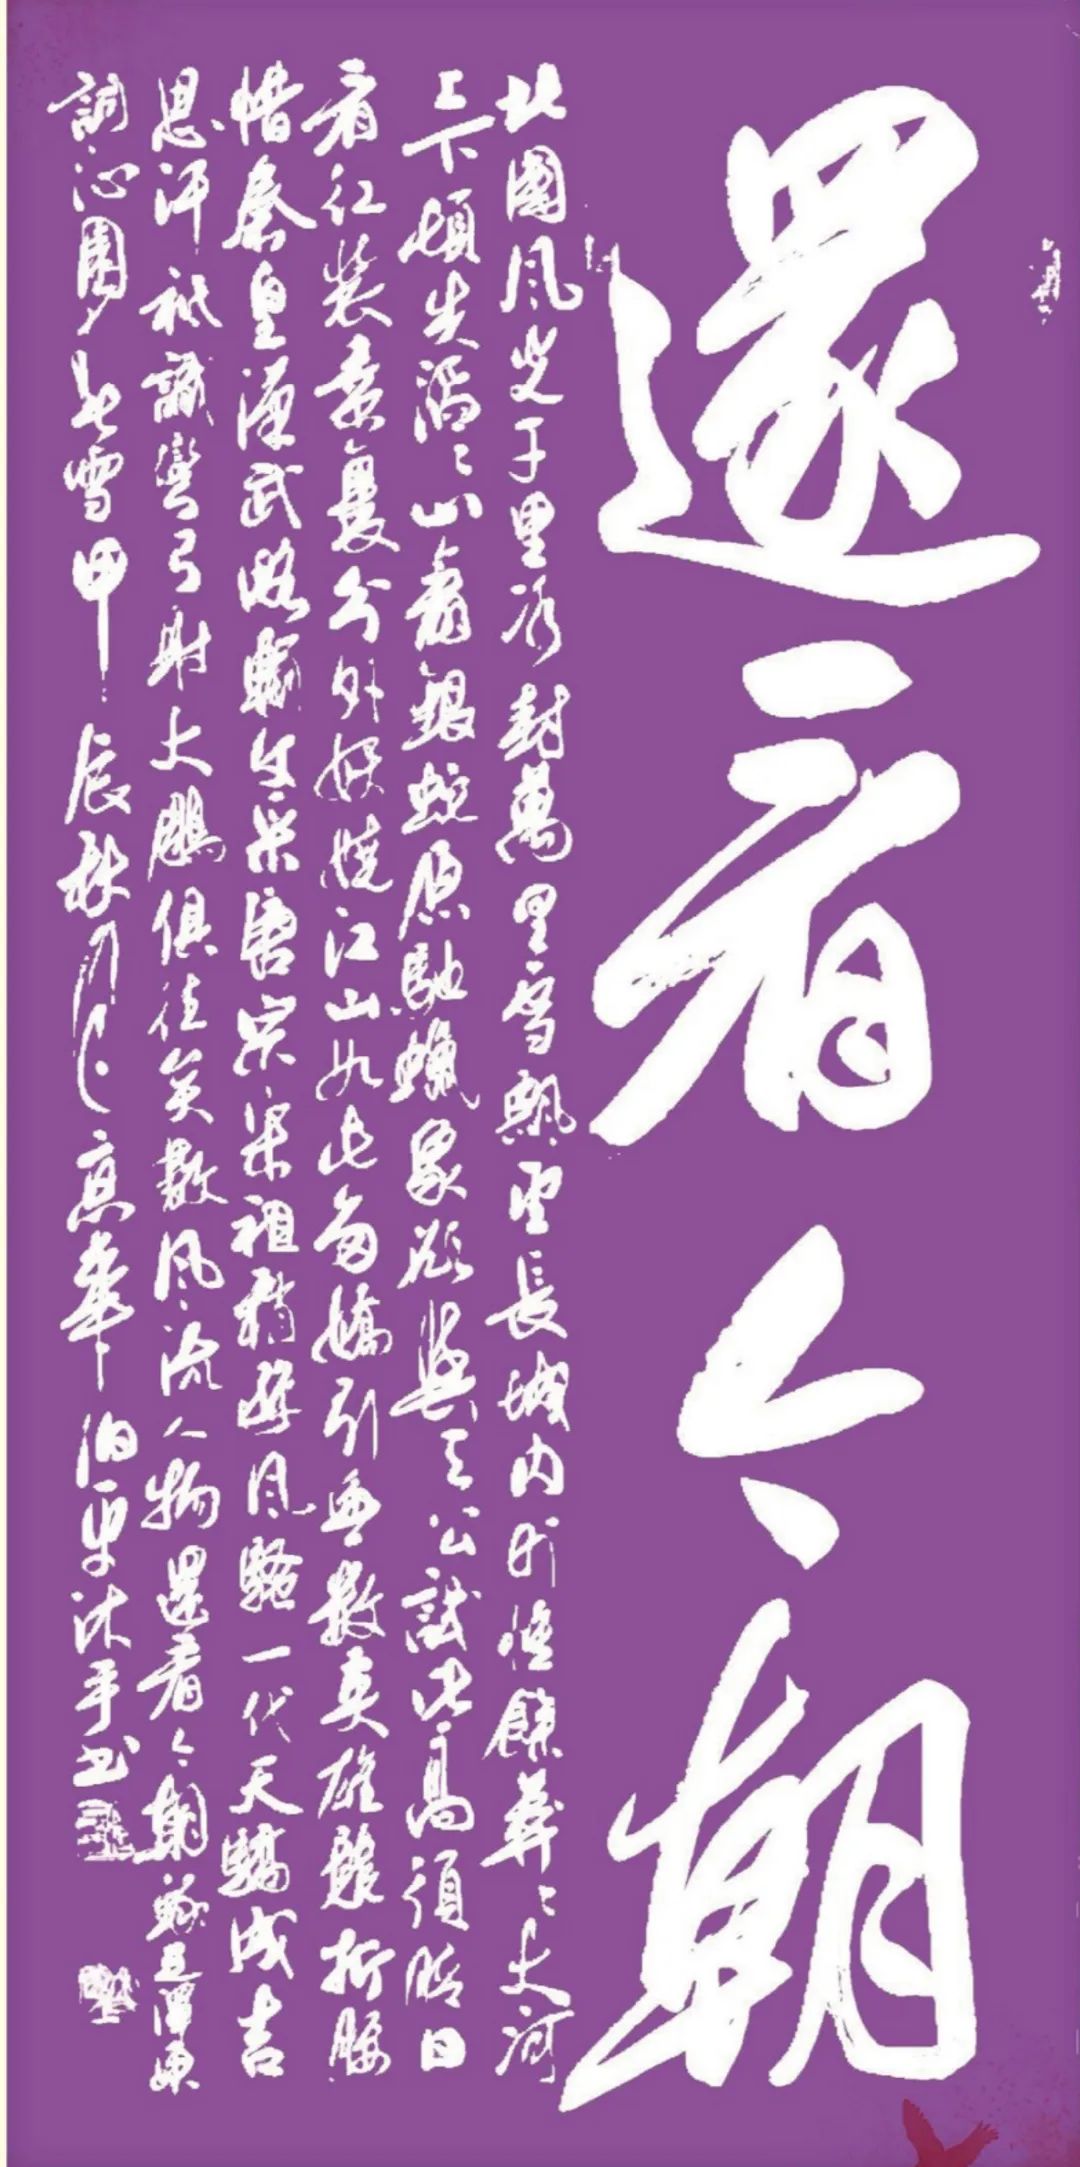 還看今朝
北國風光千里冰封萬里雪飄望長城内外惟餘莽〻大河
上下頓失滔〻山舞銀蛇原馳蠟象欲與天公試比高須晴日
看紅裝素裹分外妖嬈江山如此多嬌引無數英雄競折腰
惜秦皇漢武略輸文采唐宗宋祖稍遜風騷一代天驕成吉
思汗祗識彎弓射大鵰俱往矣數風流人物還看今朝錄毛澤東
詞沁園春雪甲辰秋月於京華沐手书